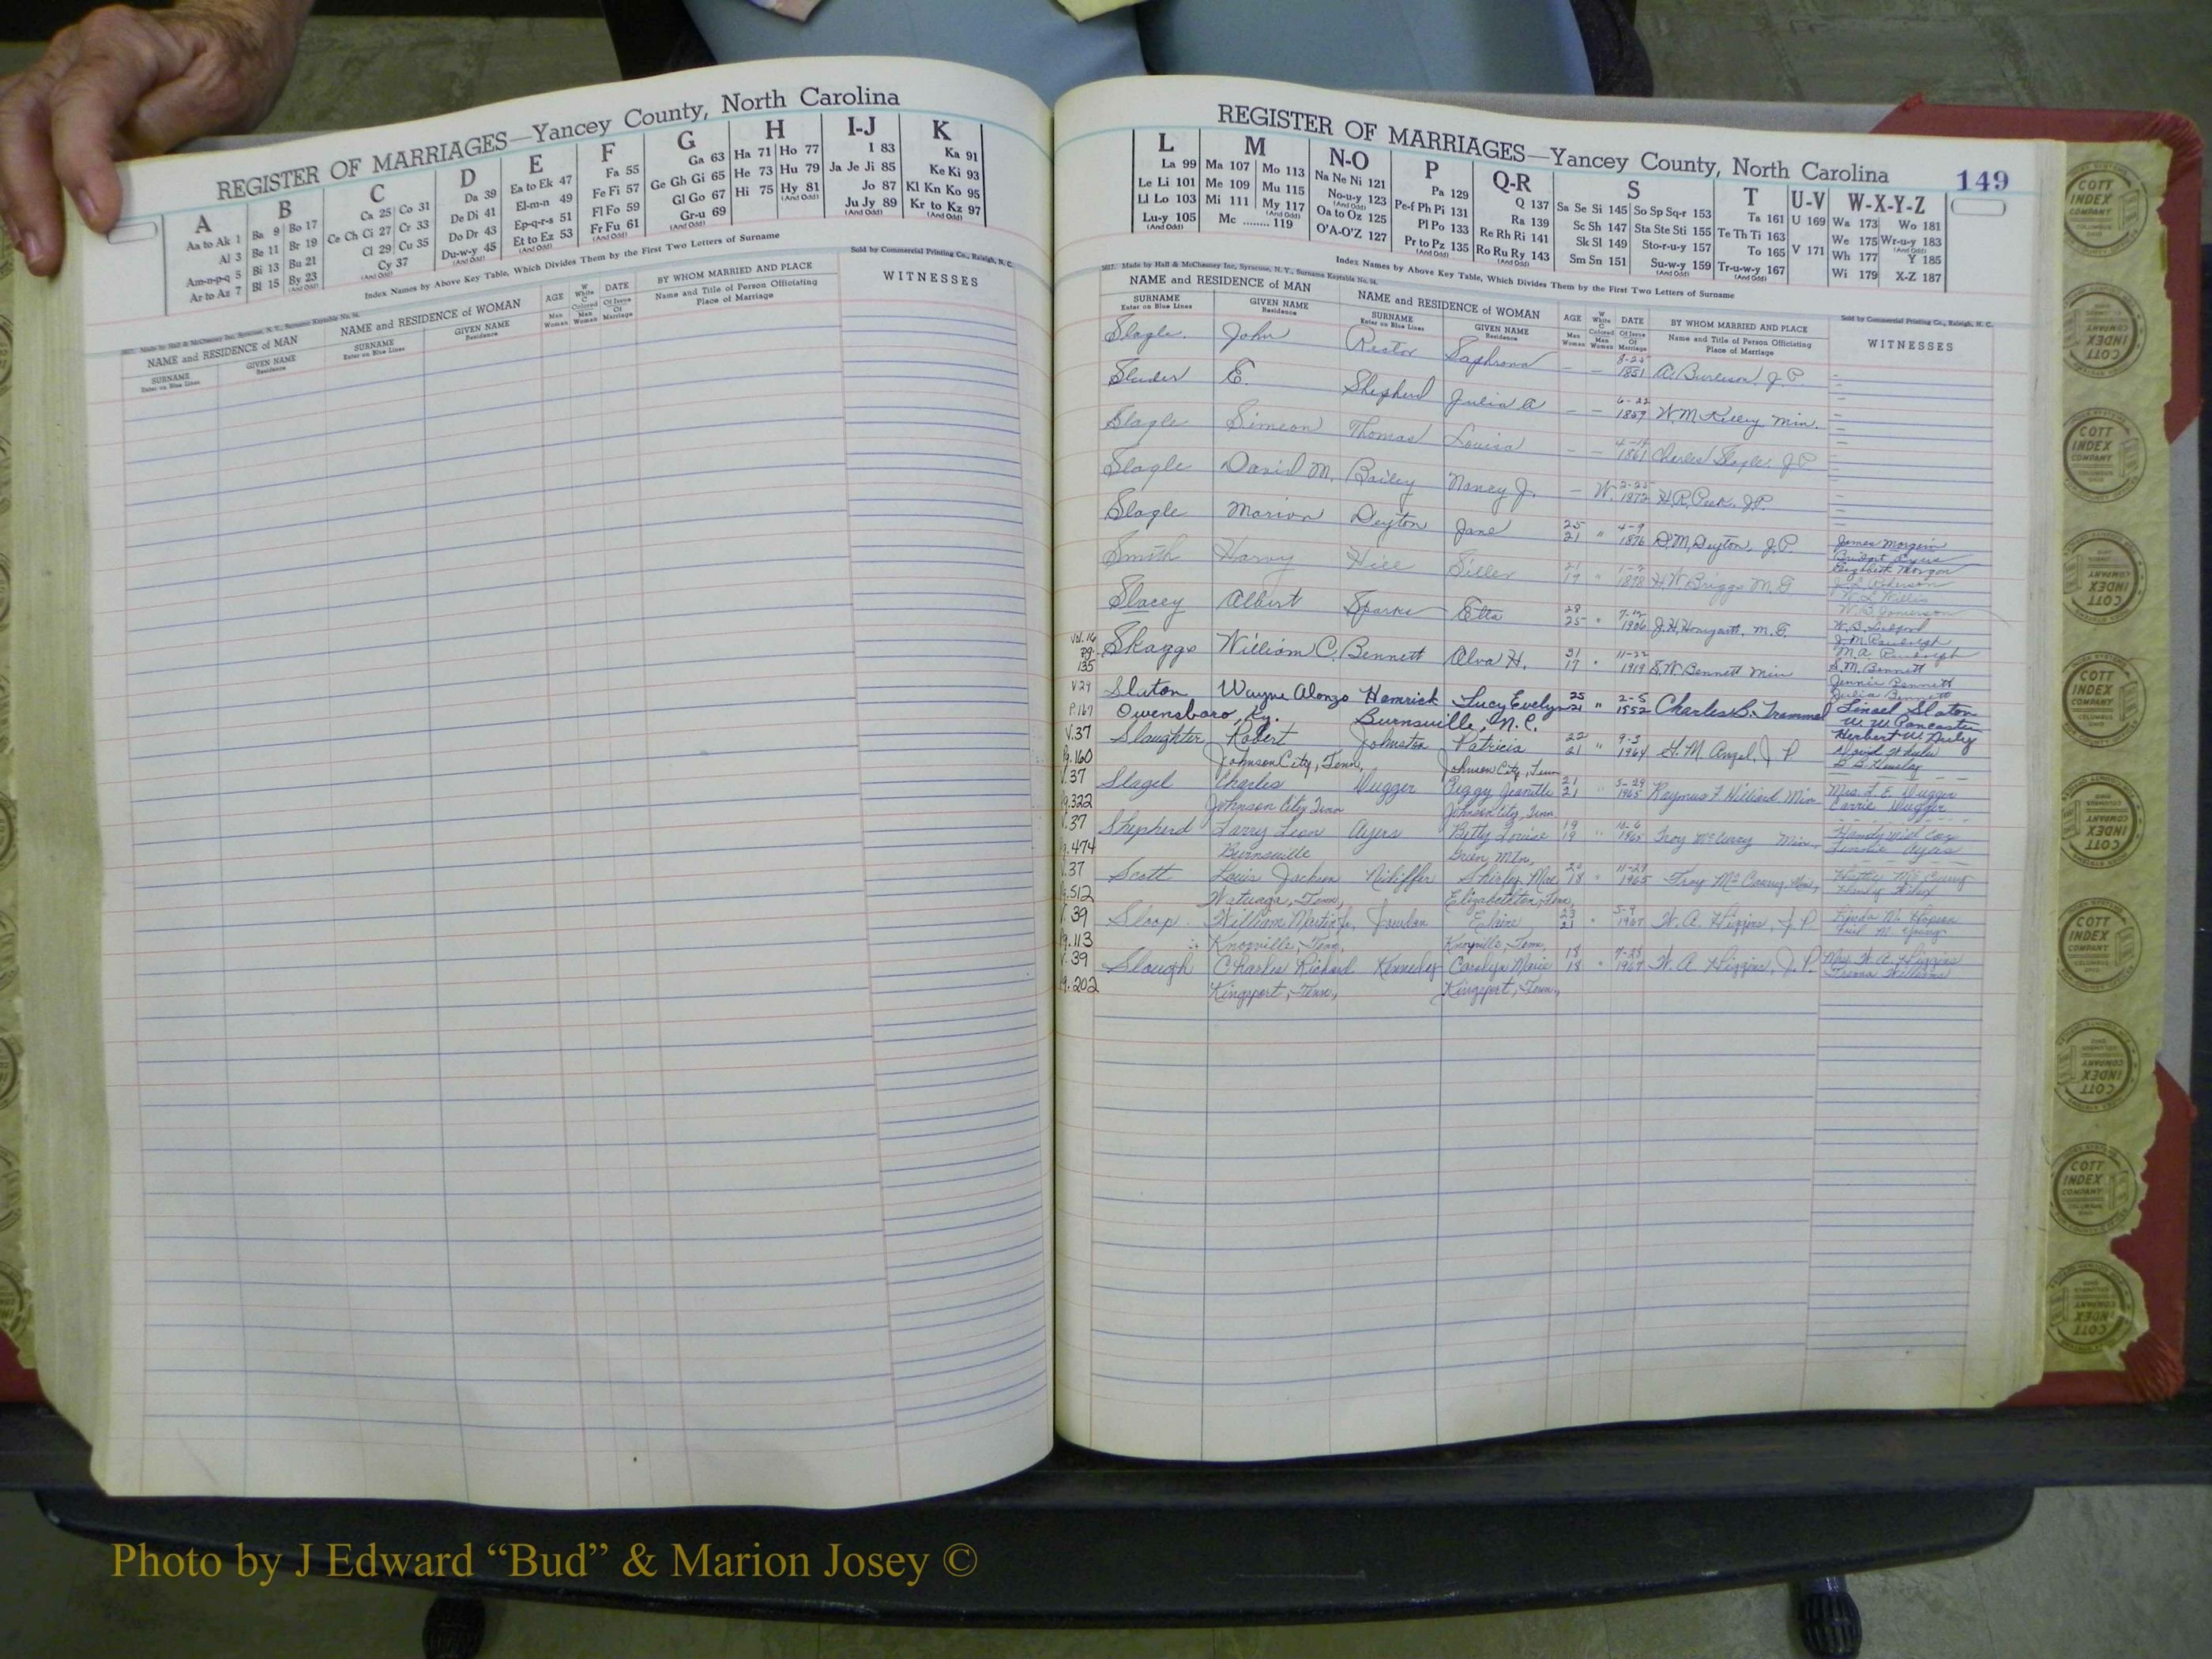 REGISTER OF MARRIAGES—Yancey County, North Carolina
A B C D E F G H I-J K
Aa to Ak 1
Al 3
Am-n-p-q 5
Ar to Az 7
Ba 9 Bo 17
Be 11 Br 19
Bi 13 Bu 21
Bl 15 By 23
(And Odd)
Ca 25 Co 31
Ce Ch Ci 27 Cr 33
Cl 29 Cu 35
Cy 37
(And Odd)
Da 39
De Di 41
Do Dr 43
Du-w-y 45
(And Odd)
Ea to Ek 47
El-m-n 49
Ep-q-r-s 51
Et to Ez 53
(And Odd)
Fa 55
Fe Fi 57
Fl Fo 59
Fr Fu 61
(And Odd)
Ga 63
Ge Gh Gi 65
Gl Go 67
Gr-u 69
(And Odd)
Ha 71 Ho 77
He 73 Hu 79
Hi 75 Hy 81
(And Odd)
I 83
Ja Je Ji 85
Jo 87
Ju Jy 89
(And Odd)
Ka 91
Ke Ki 93
Kl Kn Ko 95
Kr to Kz 97
(And Odd)
Index Names by Above Key Table, Which Divides Them by the First Two Letters of Surname
5617. Made by Hall & McChesney Inc, Syracuse, N. Y., Surname Keytable No. 94.
Sold by Commercial Printing Co., Raleigh, N. C.
NAME and RESIDENCE of MAN
SURNAME
Enter on Blue Lines
GIVEN NAME
Residence
NAME and RESIDENCE of WOMAN
SURNAME
Enter on Blue Lines
GIVEN NAME
Residence
AGE
Man
Woman
W
White
C
Colored
Man
Woman
DATE
Of Issue
Of
Marriage
BY WHOM MARRIED AND PLACE
Name and Title of Person Officiating
Place of Marriage
WITNESSES
REGISTER OF MARRIAGES—Yancey County, North Carolina
149
L M N-O P Q-R S T U-V W-X-Y-Z
La 99
Le Li 101
Ll Lo 103
Lu-y 105
(And Odd)
Ma 107 Mo 113
Me 109 Mu 115
Mi 111 My 117
(And Odd)
Mc ........ 119
Na Ne Ni 121
No-u-y 123
(And Odd)
Oa to Oz 125
O'A-O'Z 127
Pa 129
Pe-f Ph Pi 131
Pl Po 133
Pr to Pz 135
Q 137
Ra 139
Re Rh Ri 141
Ro Ru Ry 143
(And Odd)
Sa Se Si 145 So Sp Sq-r 153
Sc Sh 147 Sta Ste Sti 155
Sk Sl 149 Sto-r-u-y 157
Sm Sn 151 Su-w-y 159
(And Odd)
Ta 161
Te Th Ti 163
To 165
Tr-u-w-y 167
(And Odd)
U 169
V 171
Wa 173 Wo 181
We 175 Wr-u-y 183
(And Odd)
Wh 177 Y 185
Wi 179 X-Z 187
Index Names by Above Key Table, Which Divides Them by the First Two Letters of Surname
5617. Made by Hall & McChesney Inc, Syracuse, N. Y., Surname Keytable No. 94.
Sold by Commercial Printing Co., Raleigh, N. C.
NAME and RESIDENCE of MAN
SURNAME
Enter on Blue Lines
GIVEN NAME
Residence
NAME and RESIDENCE of WOMAN
SURNAME
Enter on Blue Lines
GIVEN NAME
Residence
AGE
Man
Woman
W
White
C
Colored
Man
Woman
DATE
Of Issue
Of
Marriage
BY WHOM MARRIED AND PLACE
Name and Title of Person Officiating
Place of Marriage
WITNESSES
Slagle John Rector Saphrona – – 8-25 1851 A. Burleson, J.P.
Sluder E. Shepherd Julia A – – 6-22 1859 W.M. Kelley Min.
Slagle Simeon Thomas Louisa – – 1861 Charles Slagle, J.P.
Slagle David M. Bailey Nancy J. – W. 2-25 1872 H.R. Peek, J.P.
Slagle Marion Deyton Jane 25 21 " 4-9 1896 D.M. Deyton, J.P. James Morgan
Elizabeth Morgan
Smith Harvy Hill Siller 21 19 " 1898 H.W. Briggs M.G.
W.L. Willis
Slacey Albert Sparks Etta 28 25 " 1906 M.G.
Vol. 16 pg. 135 Skaggs William C. Bennett Alva H. 31 17 " 11-22 1919 S.W. Bennett Min S.M. Bennett
Jennie Bennett
Julia Bennett
V 29 P.167 Slaton Wayne Alonzo Hamrick Lucy Evelyn 25 21 " 2-5 1952 Charles B. Trammel Linsel Slaton
Owensboro, Ky. Burnsville, N.C. W. W. Pancaste
V.37 Pg.160 Slaughter Robert Johnston Patricia 22 21 " 9-3 1964 H.M. Angel, J P Herbert W.
Johnson City, Tenn, Johnson City, Tenn
V.37 Pg.322 Slagel Charles Dugger Peggy Jeanette 21 21 " 5-29 1965 Raymus F Hilliard Min Mrs. F. E. Dugger
Johnson City, Tenn Johnson City, Tenn Carrie Dugger
V.37 Pg.474 Shepherd Larry Leon Ayers Betty Louise 19 19 " 10-6 1965 Troy McCurry Min.
Burnsville Green Mtn.
V.37 Pg.512 Scott Louis Jackson Nidiffer Shirley Mae 20 18 " 11-29 1965 Troy McCurry, Min,
Watauga, Tenn, Elizabethton, Tenn,
V. 39 Pg.113 Sloop William Martin Jr. Jourdan Elaine 23 21 " 5-9 1967 W.A. Higgins, J P.
Knoxville, Tenn, Knoxville, Tenn,
V. 39 Pg.202 Slough Charles Richard Kennedy Carolyn Marie 18 18 " 7-28 1967 W.A. Higgins, J. P. Mrs. W.A. Higgins
Kingsport, Tenn., Kingsport, Tenn.,
COTT
INDEX
COMPANY
COLUMBUS
OHIO
Photo by J Edward “Bud” & Marion Josey ©